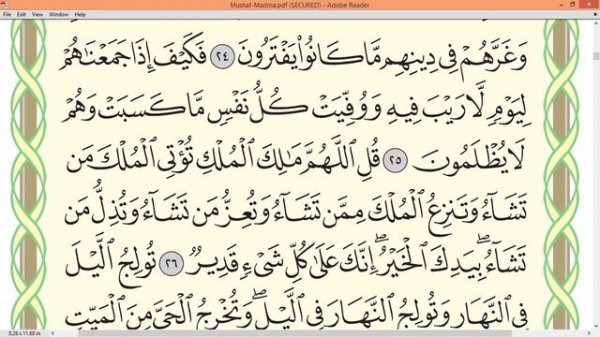 Mushaf-Madina.pdf (SECURED) - Adobe Reader
File Edit View Window Help
وَغَرَّهُمْ فِى دِينِهِم مَّا كَانُوا۟ يَفْتَرُونَ ٢٤ فَكَيْفَ إِذَا جَمَعْنَـٰهُمْ
لِيَوْمٍ لَّا رَيْبَ فِيهِ وَوُفِّيَتْ كُلُّ نَفْسٍ مَّا كَسَبَتْ وَهُمْ
لَا يُظْلَمُونَ ٢٥ قُلِ ٱللَّهُمَّ مَـٰلِكَ ٱلْمُلْكِ تُؤْتِى ٱلْمُلْكَ مَن
تَشَآءُ وَتَنزِعُ ٱلْمُلْكَ مِمَّن تَشَآءُ وَتُعِزُّ مَن تَشَآءُ وَتُذِلُّ مَن
تَشَآءُ ۖ بِيَدِكَ ٱلْخَيْرُ ۖ إِنَّكَ عَلَىٰ كُلِّ شَىْءٍ قَدِيرٌ ٢٦ تُولِجُ ٱلَّيْلَ
فِى ٱلنَّهَارِ وَتُولِجُ ٱلنَّهَارَ فِى ٱلَّيْلِ ۖ وَتُخْرِجُ ٱلْحَىَّ مِنَ ٱلْمَيِّتِ
8.26 x 11.68 in